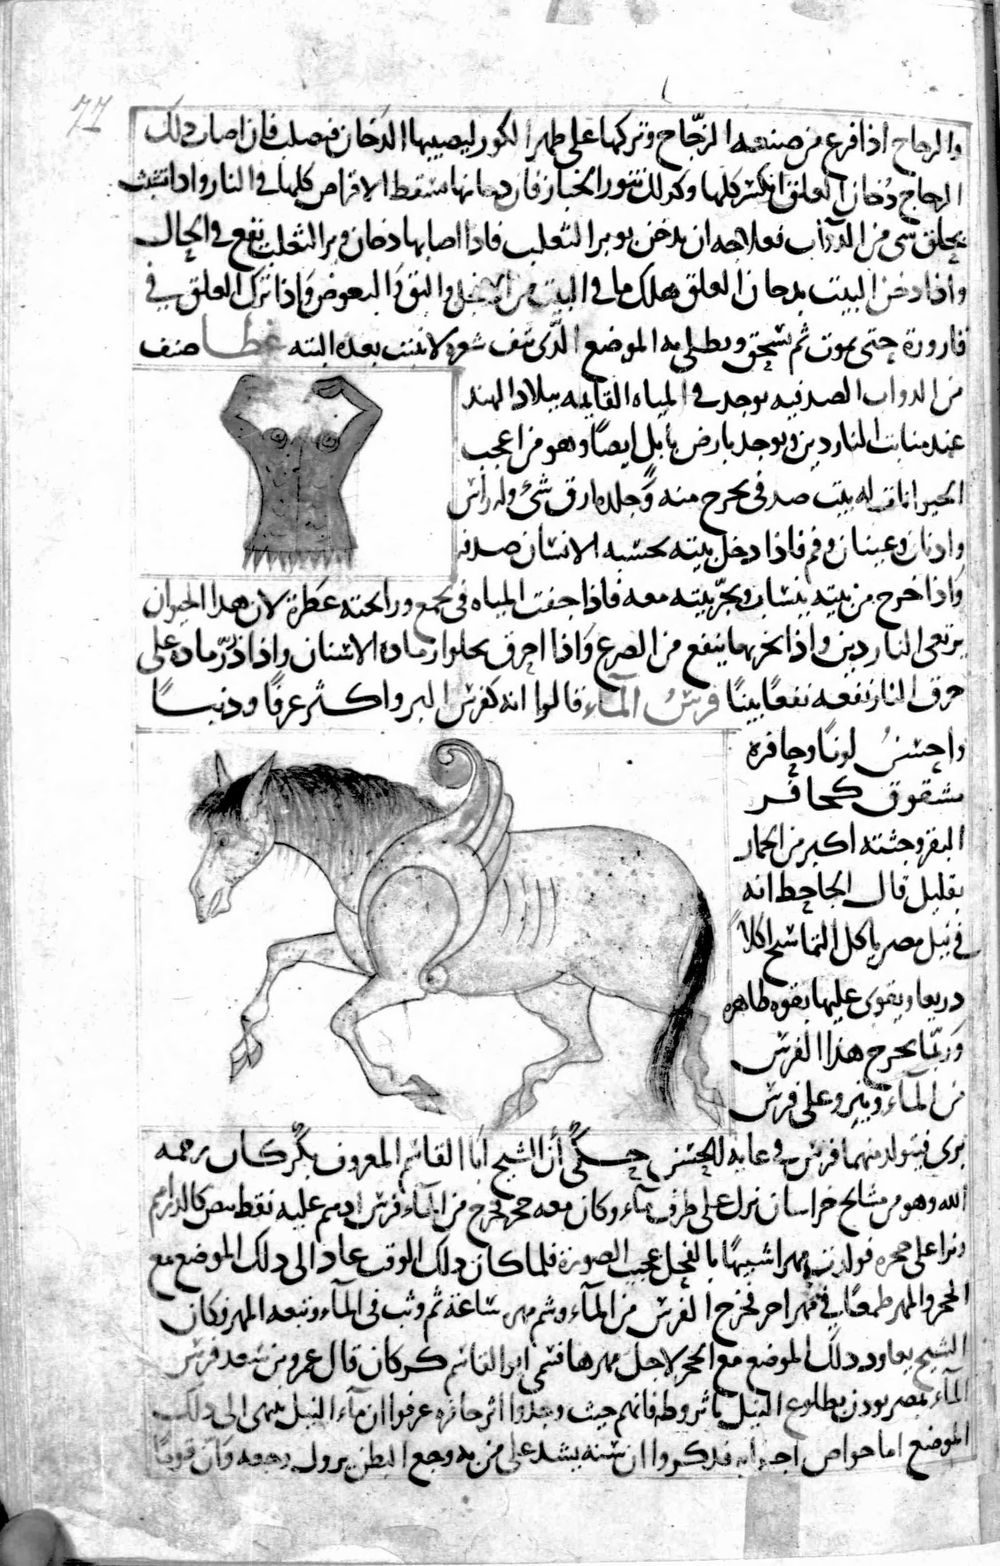 77
والزجاج اذا فرغ من صنعه الزجّاج وتركها على ظهر الكور ليصيبها الدخان فيصلب فان اصاب ذلك
الزجاج دُخان العلق انكسر كلها وكذلك تنور الخباز فان دخانها تسقط الاقراص كلها فى النار واذا تشبث
بحلق شى من الدوآب فعلاجه ان يدخن بوبر الثعلب فاذا اصابها دخان وبر الثعلب تقع فى الحال
واذا دخن البيت بدخان العلق هلك ما فى البيت من والبق والبعوض واذا ترك العلق فى
قارورة حتى يموت ثم يسحق ويطلى به الموضع الذى نتف شعره لا ينبت بعده البته غطا صنف
من الدواب الصدفيه يوجد فى المياه القايمه ببلاد الهند
عند منابت الناردين ويوجد بارض بابل ايضًا وهو من اعجب
الحيوانات له بيت صدفى يخرج منه وجلده ارق شئ وله رأس
واذنان وعينان وفم فاذا دخل بيته يحسبه الانسان صدفه
واذا خرج من بيته ينساب ويجرّ بيته معه فاذا جفت المياه فى يجمع ورائحته عطرة لان هذا الحيوان
يرتعى الناردين واذا بخر بها ينفع من الصرع واذا احرق يجلو رماده الاسنان واذا ذرّ رماده على
حرق النار نفعه نفعًا بينًا فرس المآء قالوا انه كفرس البر الا انه اكثر عرفًا وذنبًا
واحسن لونًا وحافره
مشقوق كحافر
البقر وجثته اكبر من الحمار
بقليل قال الجاحظ انه
فى نيل مصر ياكل التماسيح اكلًا
ذريعا ويقوى عليها بقوه ظاهره
وربّما يخرج هذا الفرس
من المآء وينزو على فرس
برى فيتولد منهما فرس فى غاية الحسن حكى أن الشيخ ابا القاسم المعروف بكركان رحمه
الله وهو من مشايخ خراسان نزل على طرف مآء وكان معه حجر فخرج من المآء فرس ادهم عليه نقط بيض كالدراهم
ونزا على حجره فولدت مهرا شبيهًا بالفحل عجيب الصورة فلما كان ذلك الوقت عاد الى ذلك الموضع مع
الحجر والمهر طمعًا فى مهر اخر فخرج الفرس من المآء وشم مهره ساعة ثم وثب فى المآء وتبعه المهر فكان
الشيخ يعاود ذلك الموضع مع الحجر لاجل مهرها فسمى ابو القاسم كركان قال عمرو بن سعد فرس
المآء بمصر يوذن بطلوع النيل باثر وطئه فانهم حيث وجدوا اثر حافره عرفوا ان مآء النيل ينتهى الى ذلك
الموضع اما خواص اجزايه فذكروا ان سنه يشد على من به وجع البطن يزول وجعه وان قومًا